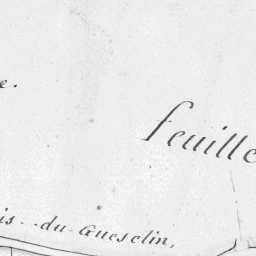 e.
feuille
is - du - Guesclin,